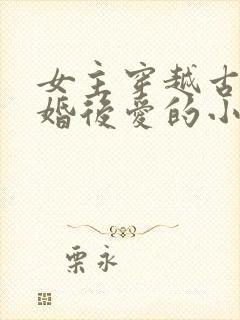 女主穿越古
婚後愛的小
栗永